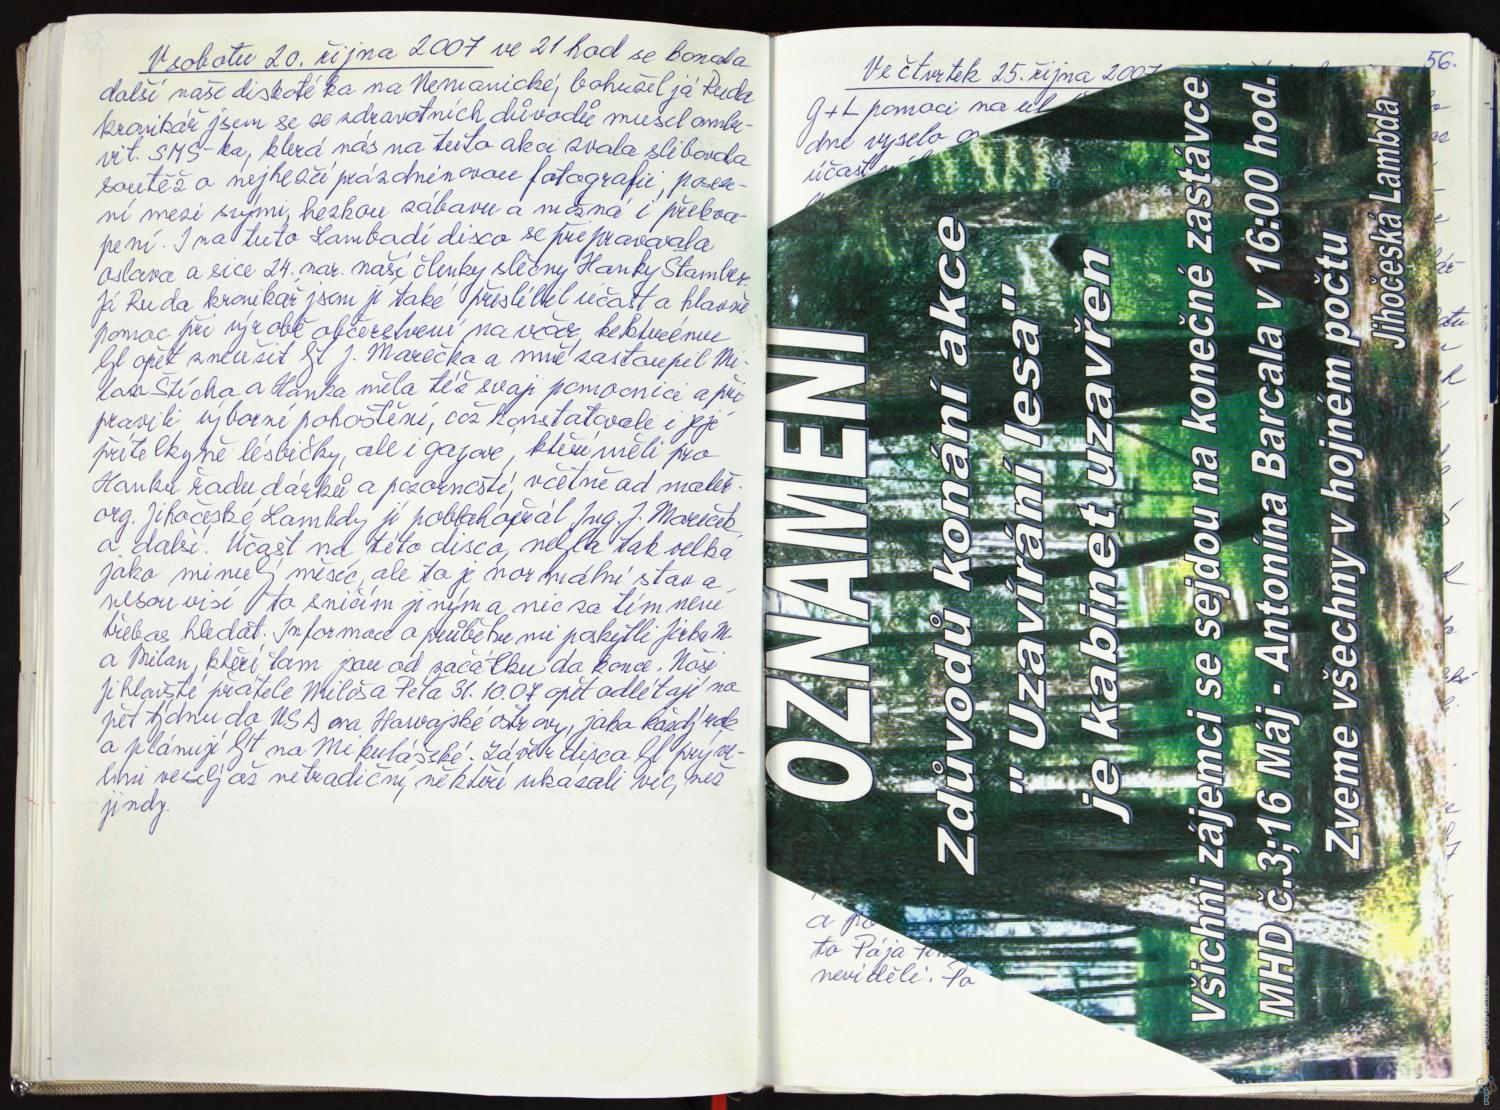 V sobotu 20. října 2007 ve 21 hod se konala
další naše diskotéka na Nemanické, bohužel já Ruda
kronikář jsem se ze zdravotních důvodů musel omlu-
vit. SMS-ka, která nás na tuto akci zvala slibovala
soutěž o nejhezčí prázdninovou fotografii, posez-
ní mezi svými, hezkou zábavu a možná i překva-
pení. I na tuto Lambadí disco se připravovala
oslava a sice 24. nar. naší členky slečny Hanky
Já Ruda kronikář jsem jí také přislíbil účast a hlavně
pomoc při výrobě občerstvení na večer,
být opět J. Marečka a mně zastoupil Mi-
lan Štícha a Hanka měla též svoji pomocnici a při
pravili výborné pohoštění, což konstatovali i její
přítelkyně lésbičky, ale i gayové, kteří měli pro
Hanku řadu dárků a pozorností, včetně od mateř.
org. Jihočeské Lambdy jí poblahopřál Ing. J. Mareček
a další. Účast na této disco, nebyla tak velká
jako minulý měsíc, ale to je normální stav a
nesouvisí to s ničím jiným a nic za tím není
třeba hledat. Informace o průběhu mi poskytli Jirka M
a Milan, kteří tam jsou od začátku do konce. Naši
jihlavští přátele Miloš a Péťa 31.10.07 opět odlétají na
pět týdnů do USA na Havajské ostrovy, jako každý rok
a plánují být na Mikulášské. Závěr disca byl prý ve-
lmi veselý až netradiční, někteří ukázali víc, než
jindy.
56.
Ve čtvrtek 25. října 2007
G+L pomoci na ul
dne vyselo
účast
OZNÁMENÍ
Zdůvodů konání akce
" Uzavírání lesa"
je kabinet uzavřen
Všichni zájemci se sejdou na konečné zastávce
MHD č.3;16 Máj - Antonína Barcala v 16:00 hod.
Zveme všechny v hojném počtu
Jihočeská Lambda
a po
to Pája
neviděli. Po